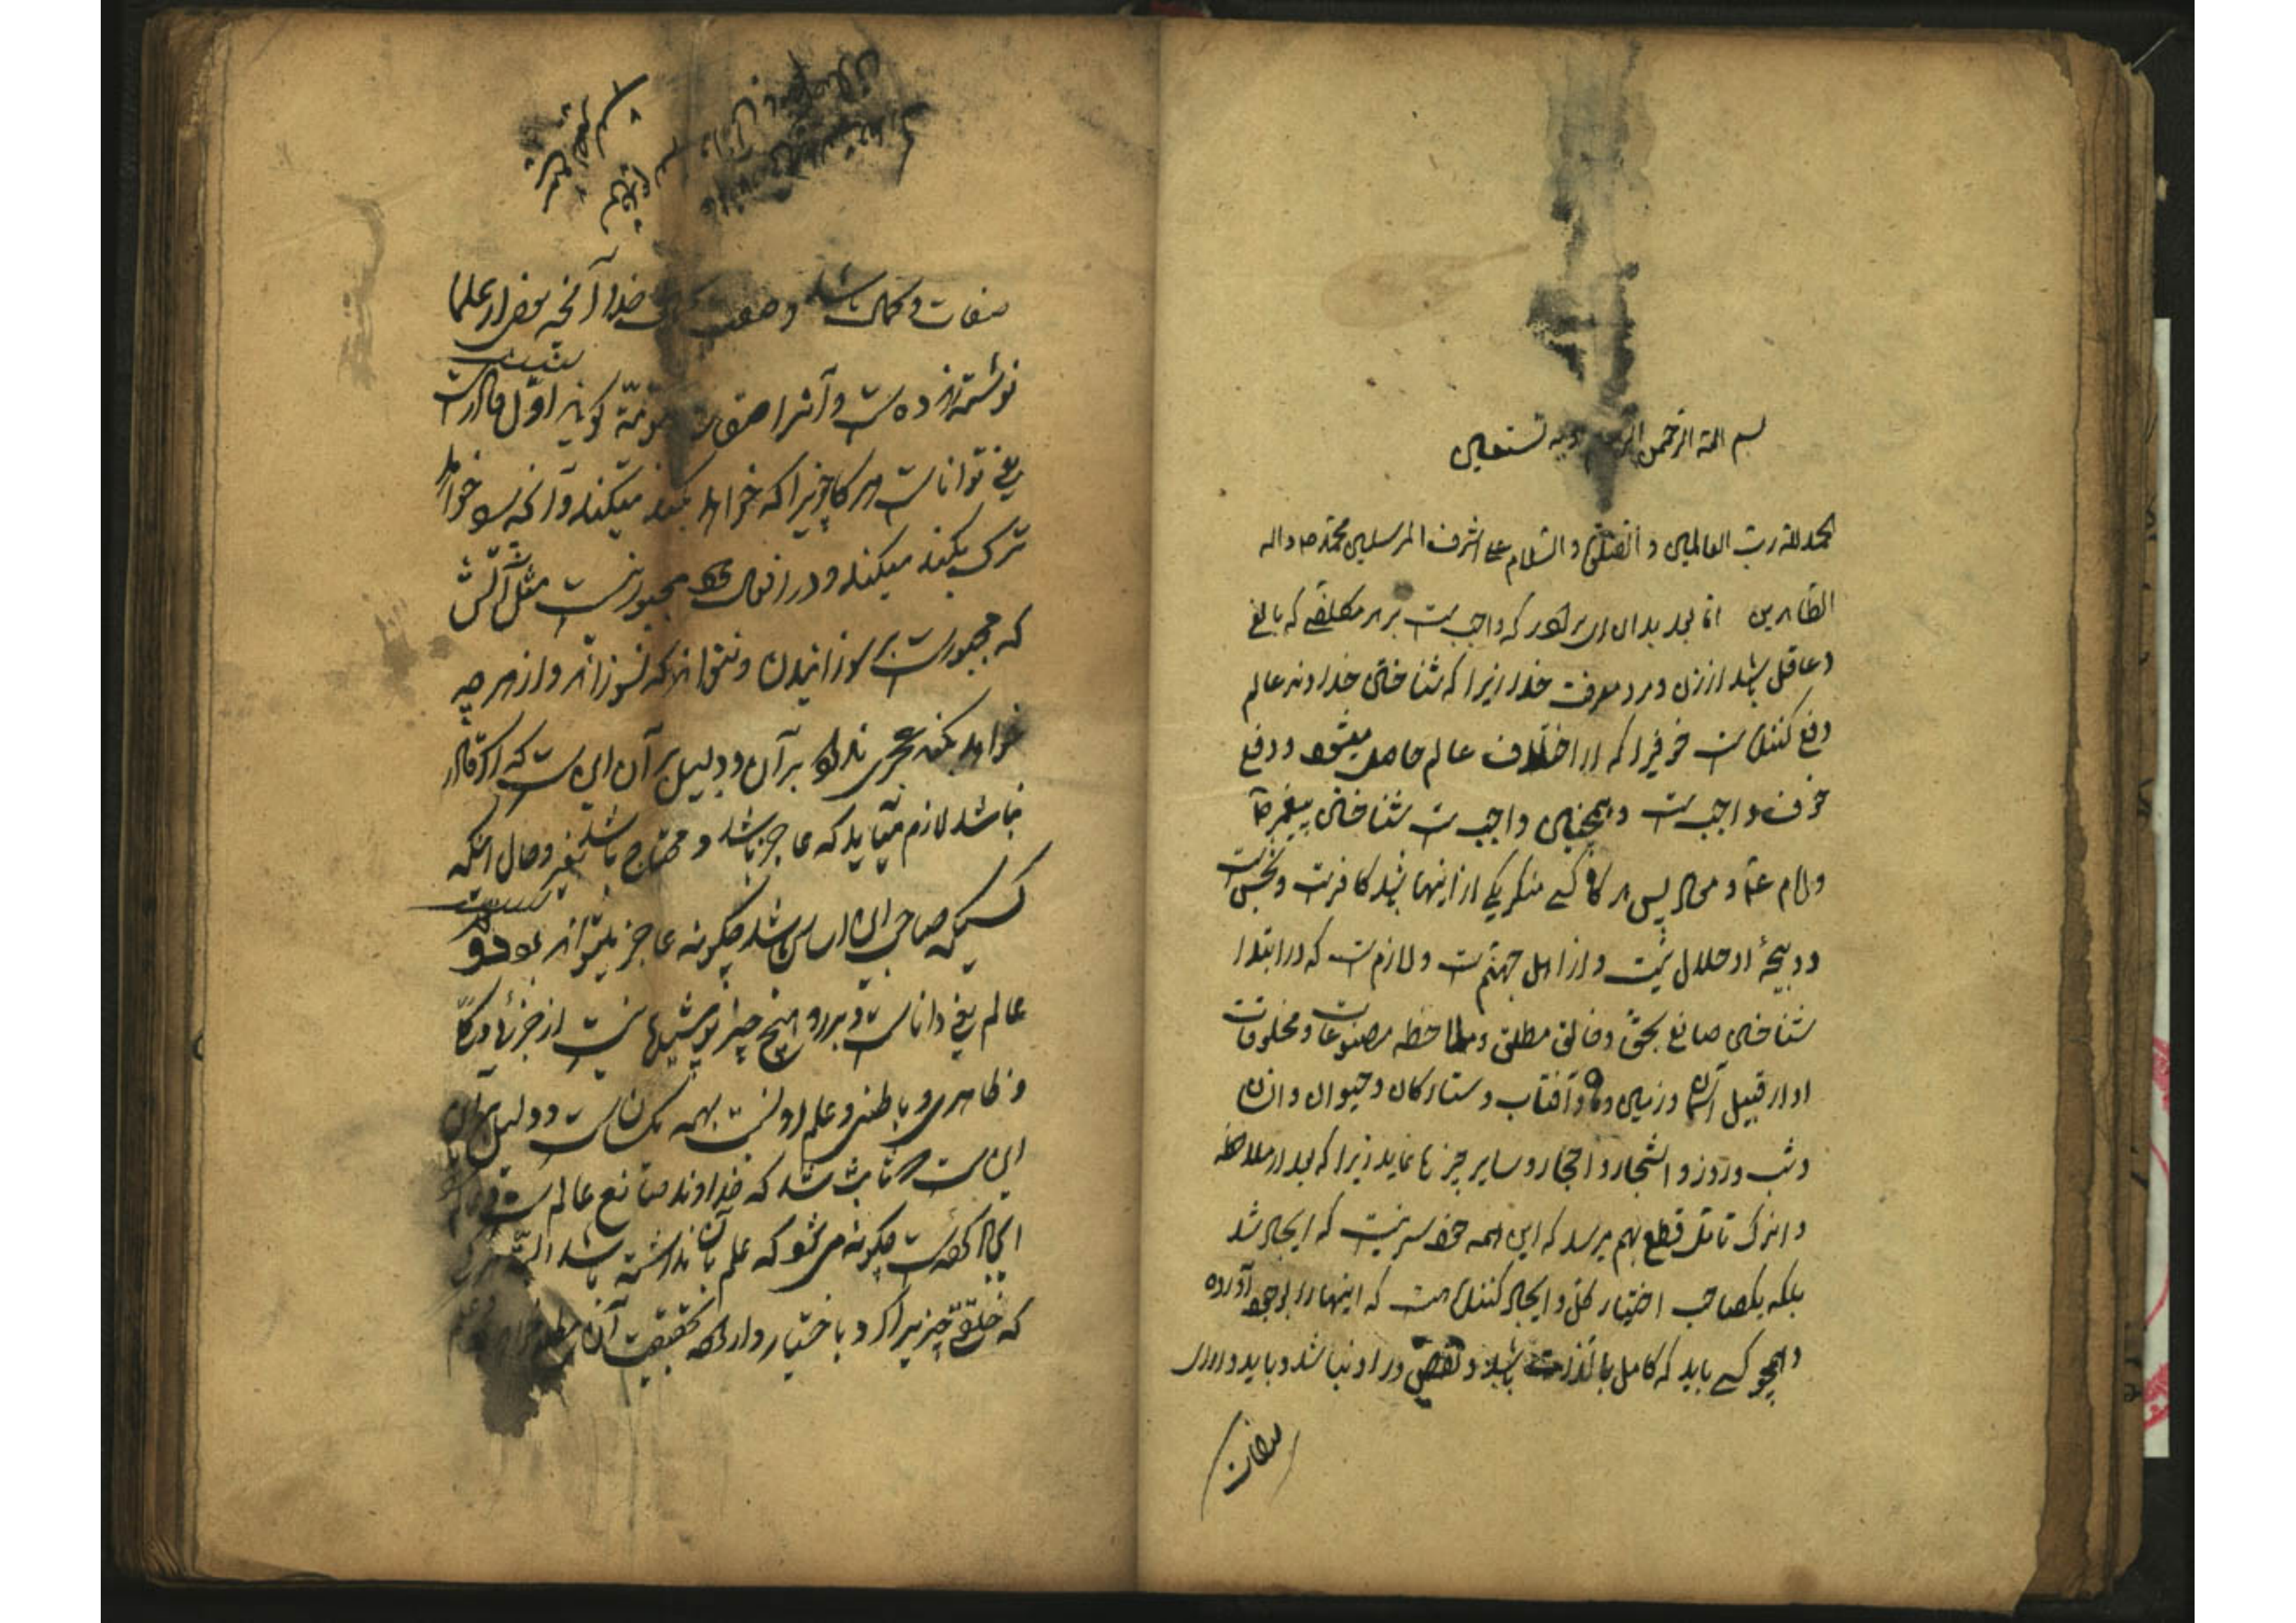 بسم الله الرحمن الرحیم وبه نستعین
الحمد لله رب العالمین و الصلوة و السلام علی اشرف المرسلین محمد ص واله
الطاهرین اما بعد بدان ای برادر که واجبست بر هر مکلفی که بالغ
و عاقل باشد از زن و مرد معرفت خدا زیرا که شناختن خداوند عالم
دفع کننده است خوفیرا که از اختلاف عالم حاصل میشود و دفع
خوف واجب است و همچنین واجب است شناختن پیغمبر ص
و امام ع و معاد پس هرگاه کسی منکر یکی از اینها باشد کافرست و نجس است
و ذبیحهٔ او حلال نیست و از اهل جهنم است و لازم است که در ابتدا
شناختن صانع بحق و خالق مطلق و ملاحظه مصنوعات و مخلوقات
او از قبیل آسمان و زمین و ماه و آفتاب و ستارکان و حیوان و انسان
و شب و روز و اشجار و احجار و سایر چیزها نماید زیرا که بعد از ملاحظه
و اندک تامل قطع بهم میرسد که این همه خود سر نیست که ایجاد شد
بلکه یکصاحب اختیار کل و ایجاد کننده هست که اینها را بوجود آورده
و همچو کسی باید که کامل بالذات باشد و نقصی در او نباشد و باید دارای
صفات
صفات و کمال باشد و صفت خدا آنچه بعضی از علما
نوشته‌اند هشت است و آنرا صفات ثبوتیه کویند اول قادرست
یعنی توانا است هر کار چیزیرا که خواهد بکند میکند و آنچه را خواهد
ترک بکند میکند و در افعال خود مجبور نیست مثل آتش
که مجبورست بر سوزانیدن و نتواند که نسوزاند و از هر چه
خواهد بکند عجزی ندارد بر آن و دلیل بر آن این است که اکر قادر
نباشد لازم میآید که عاجز باشد و محتاج باشد بغیر و حال آنکه
کسیکه صاحب این اساس باشد چکونه عاجز میتواند بود دویم
عالم یعنی دانا است و بر او هیچ چیز پوشیده نیست از جزئی و کلی
و ظاهری و باطنی و علم او نسبت بهمه یکسان است و دلیل بر این
این است که ثابت شد که خداوند صانع عالم است و
ایجاد کرده است چکونه میشود که علم بآن نداشته باشد البته هر کس
که خلق چیزیرا کرد باختیار و اراده بحقیقت آن مطلع خواهد بود